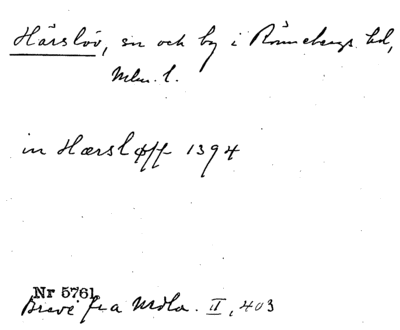 Härslöv, sn och by i Rönnebergs hd,
Mlm. l.
in Hærsløff 1394
Nr 5761
Brevé fra Mdla. II, 403